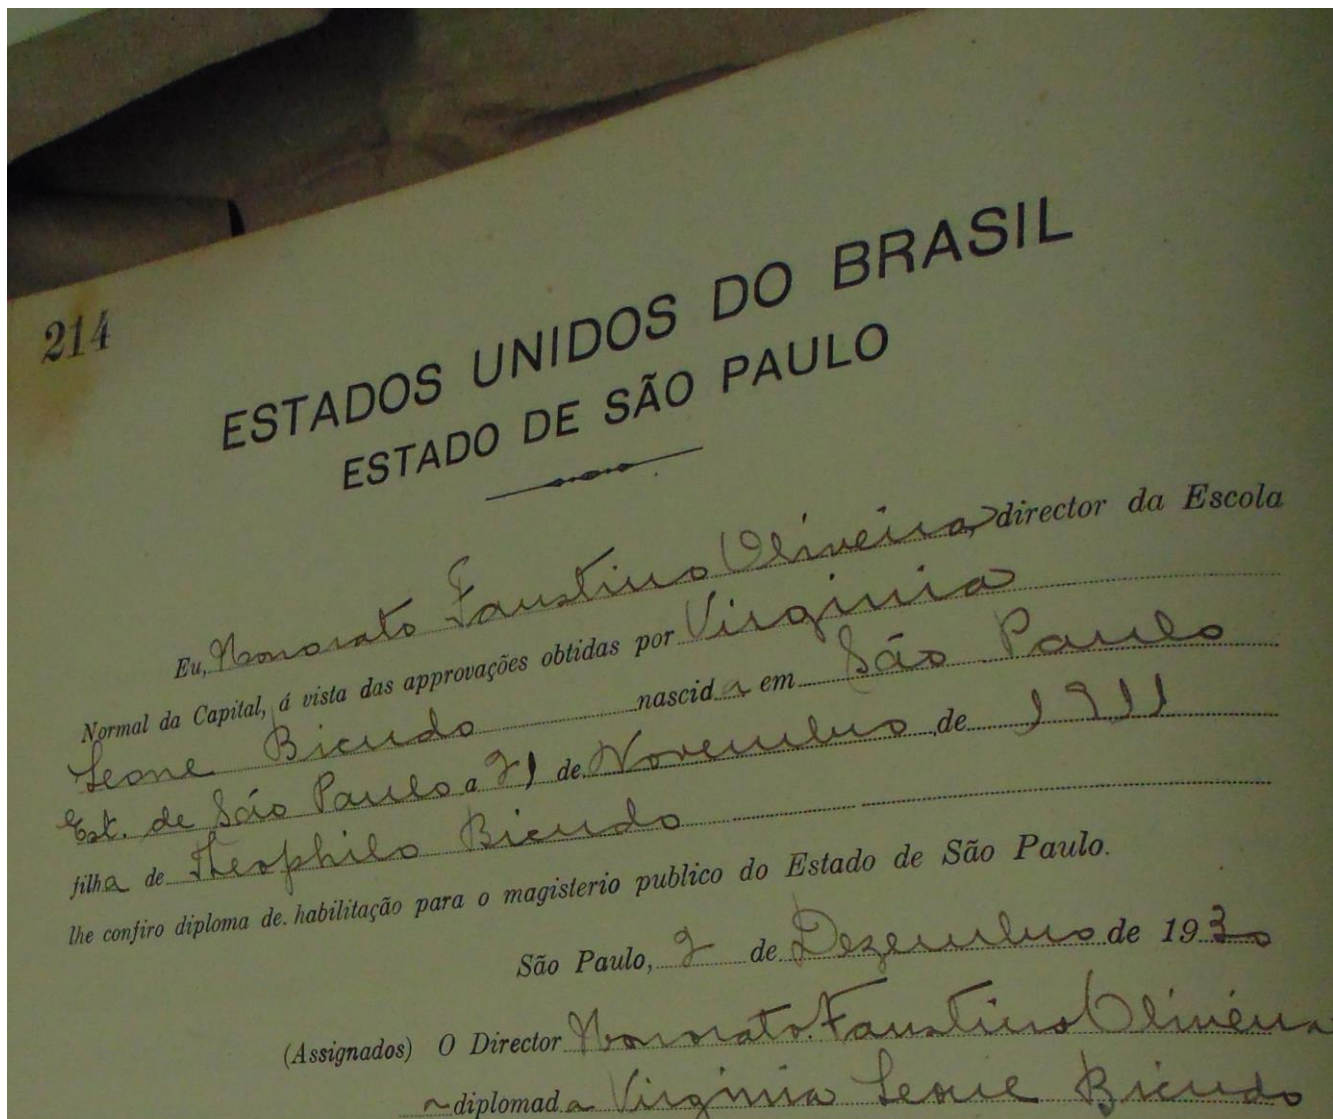 214
ESTADOS UNIDOS DO BRASIL
ESTADO DE SÃO PAULO
Eu, Honorato Faustino Oliveira, director da Escola
Normal da Capital, á vista das approvações obtidas por Virginia
Leone Bicudo nascida em São Paulo
Est. de São Paulo a 21 de Novembro de 1911
filha de Theophilo Bicudo
lhe confiro diploma de habilitação para o magisterio publico do Estado de São Paulo.
São Paulo, 2 de Dezembro de 1930
(Assignados) O Director Honorato Faustino Oliveira
A diplomada Virginia Leone Bicudo